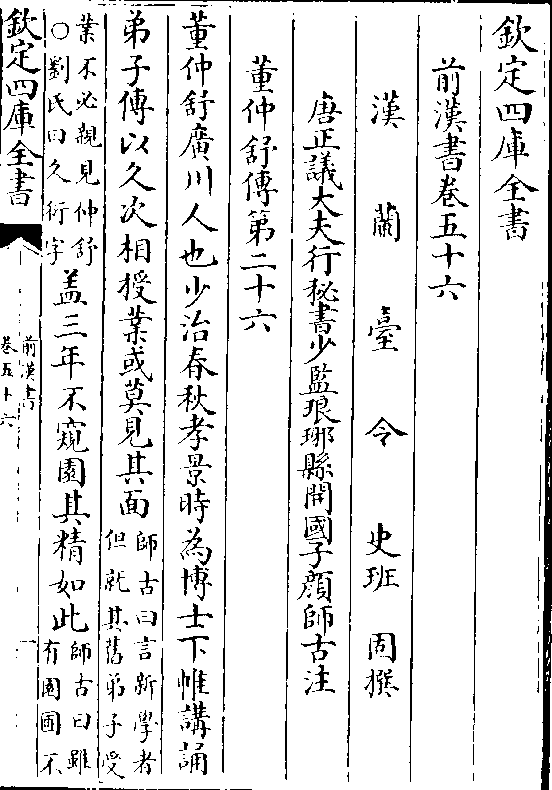 欽定四庫全書
前漢書卷五十六
漢蘭臺令史班固撰
唐正議大夫行秘書少監琅琊縣開國子顔師古注
董仲舒傳第二十六
董仲舒廣川人也少治春秋孝景時為博士下帷講誦
弟子傳以久次相授業或莫見其面
師古曰言新學者
但就其舊弟子受
業不必親見仲舒
○劉氏曰久衍字
盖三年不窺園其精如此
師古曰雖
有園圃不
欽定四庫全書
前漢書
卷五十六
一